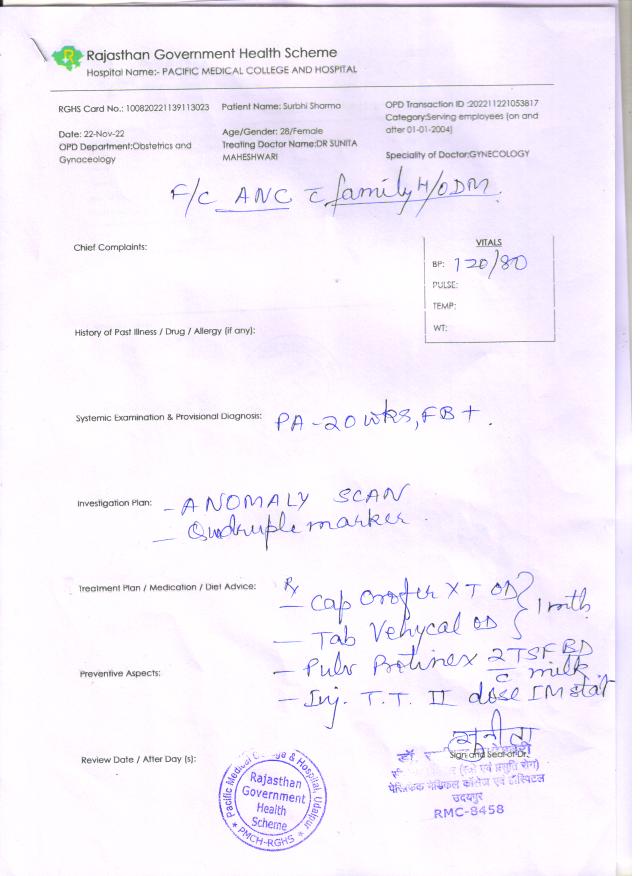 Rajasthan Government Health Scheme
Hospital Name:- PACIFIC MEDICAL COLLEGE AND HOSPITAL
RGHS Card No.: 100820221139113023
Patient Name: Surbhi Sharma
OPD Transaction ID :202211221053817
Category:Serving employees (on and
after 01-01-2004)
Date: 22-Nov-22
Age/Gender: 28/Female
OPD Department:Obstetrics and
Gynaceology
Treating Doctor Name:DR SUNITA
MAHESHWARI
Speciality of Doctor:GYNECOLOGY
F/C ANC c̄ family H/O DM.
Chief Complaints:
VITALS
BP: 120/80
PULSE:
TEMP:
WT:
History of Past Illness / Drug / Allergy (if any):
Systemic Examination & Provisional Diagnosis: PA - 20 wks, FB + .
Investigation Plan: - ANOMALY SCAN
- Quadruple marker
Treatment Plan / Medication / Diet Advice: Rx
- Cap Orofer XT OD
- Tab Venycal OD } 1 mth
Preventive Aspects: - Pulv Protinex 2TSF BD
c̄ milk
- Inj. T.T. II dose IM stat
सुनीता
Review Date / After Day (s):
Sign and Seal of Dr.
डॉ.
(स्त्री एवं प्रसूति रोग)
पेसिफिक मेडिकल कॉलेज एवं हॉस्पिटल
उदयपुर
RMC-8458
Pacific Medical College & Hospital, Udaipur
Rajasthan
Government
Health
Scheme
PMCH-RGHS